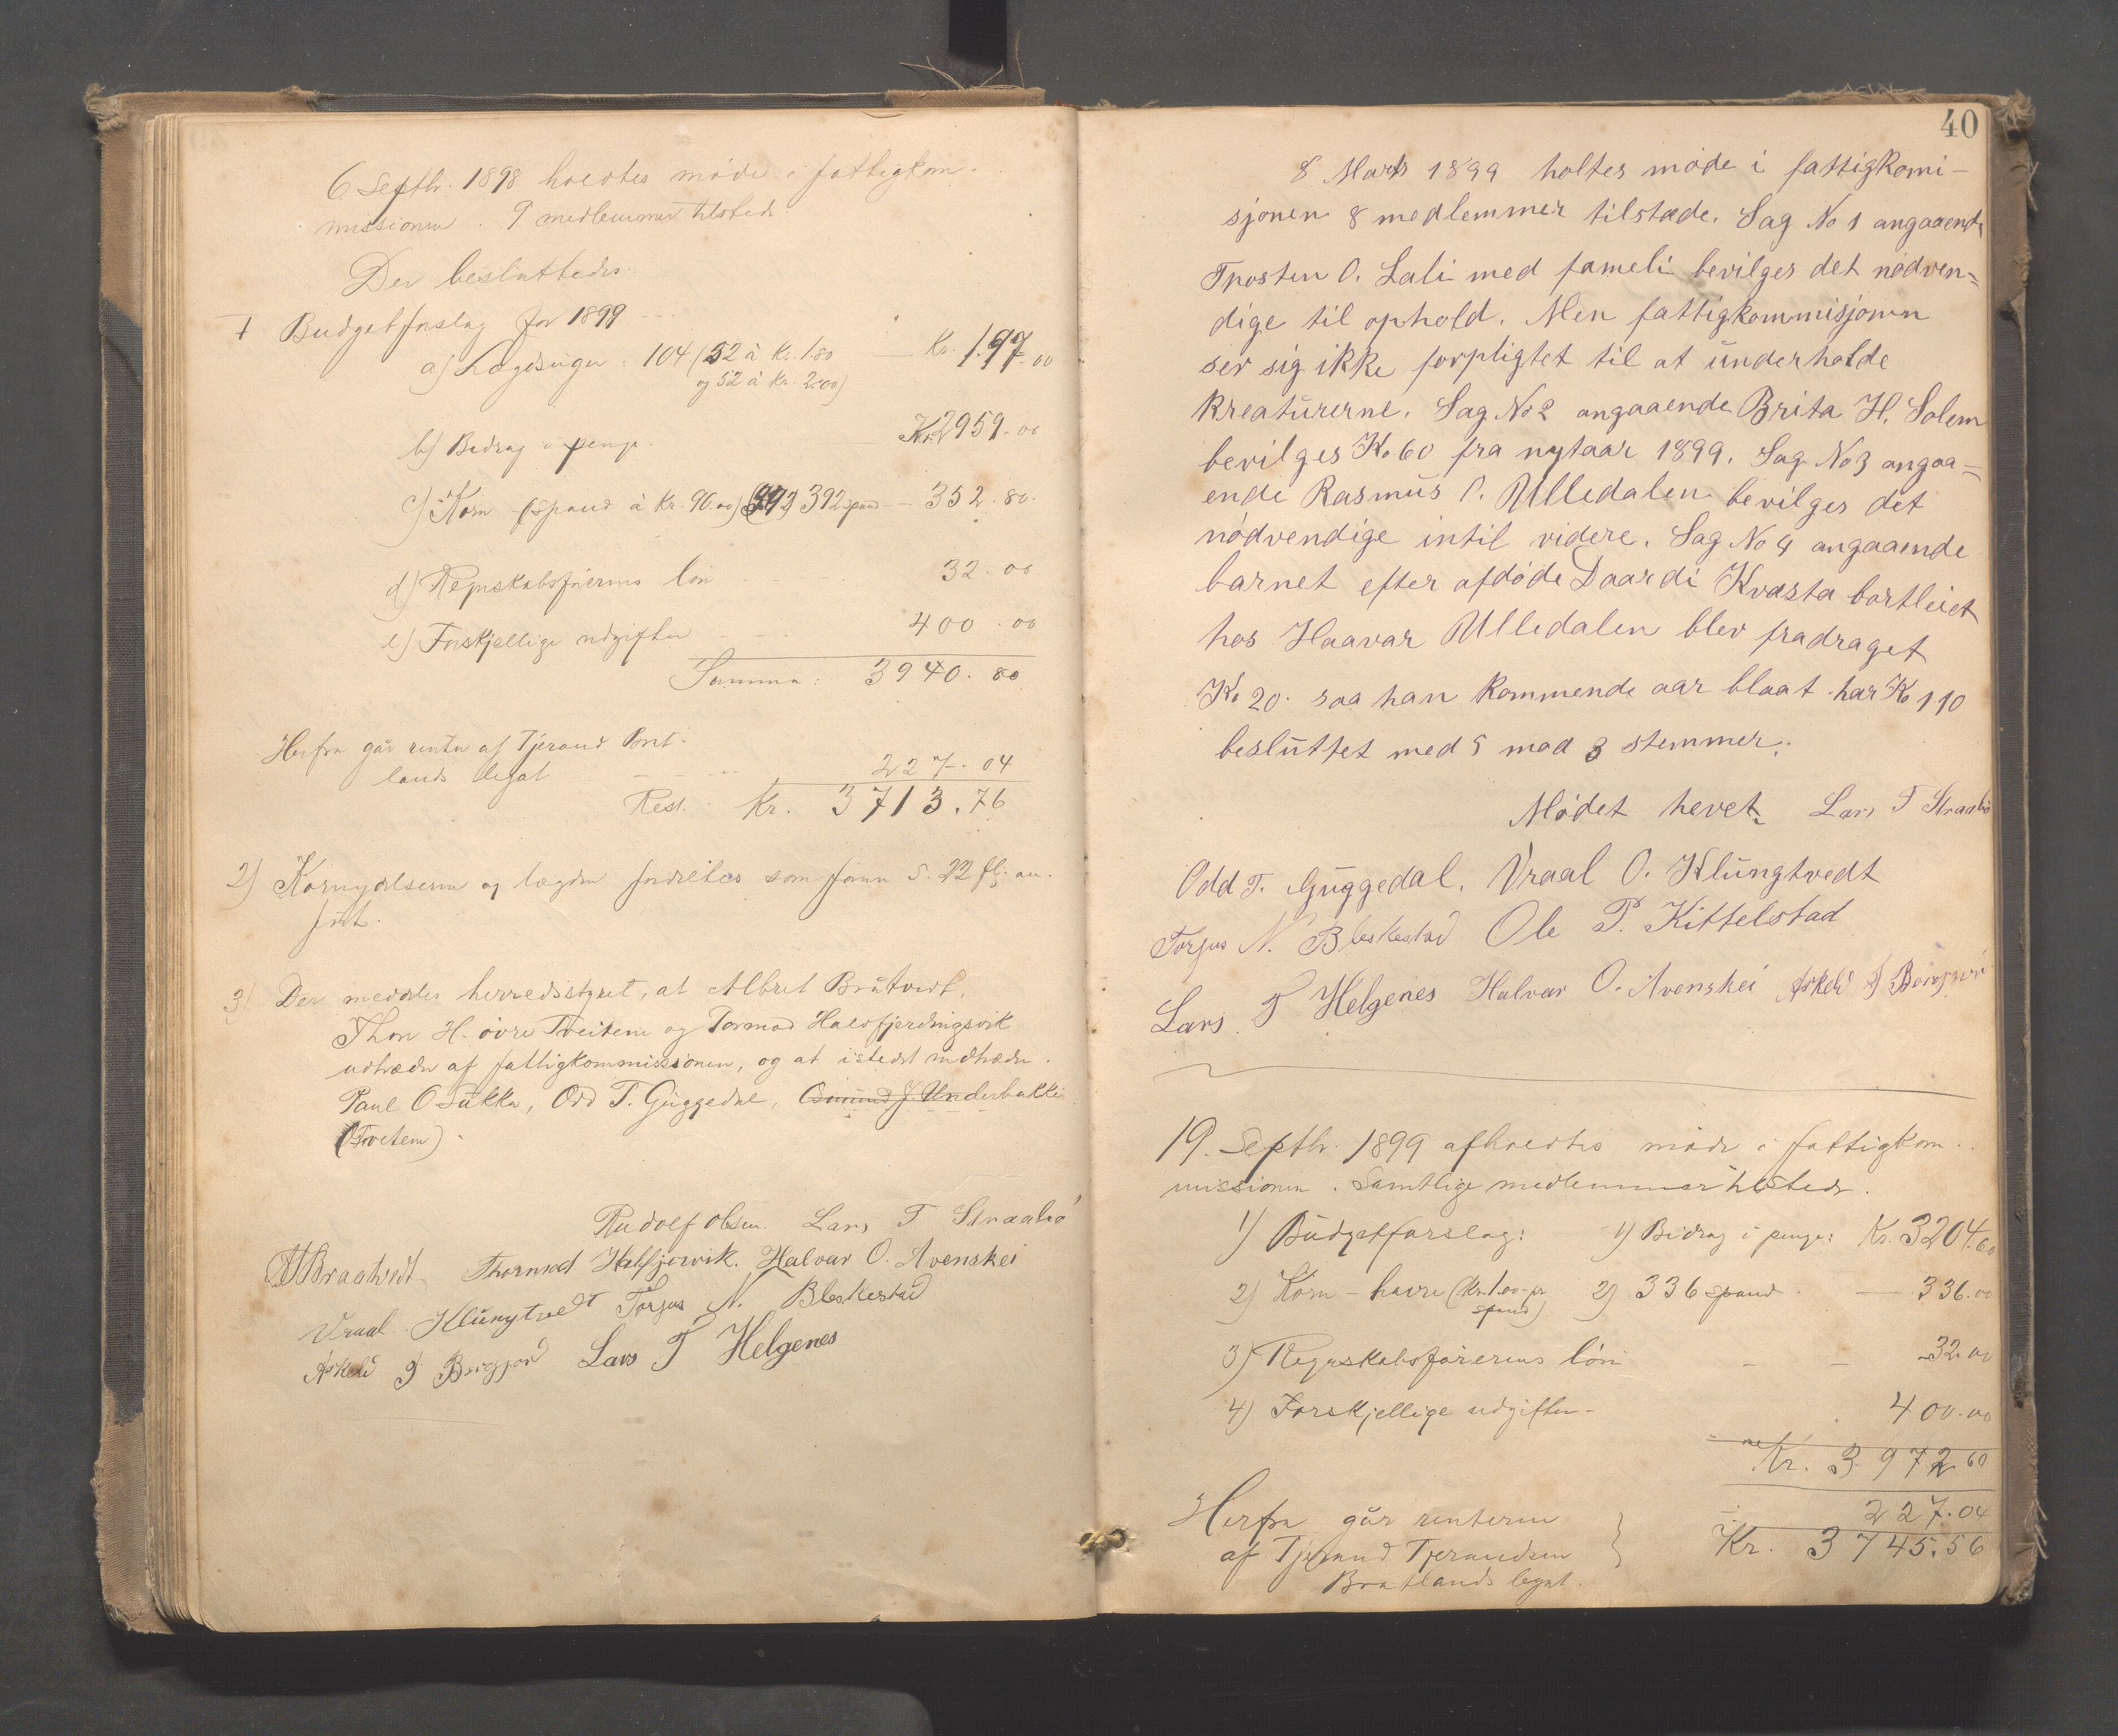 6 Septbr. 1898 holdtes møde i fattigkom-
missionen. 9 medlemmer tilstede
Der besluttedes:
1 Budgetforslag for 1899
a) Lægdsuger: 104 (52 à Kr. 1.80 — Kr. 197.00
og 52 à Kr. 2.00)
b) Bidrag i penge. Kr. 2959.00
c) Korn - (spand à Kr. 90.00) 392 spand — 352.80.
d) Regnskabsførerens løn 32.00
e) Forskjellige udgifter 400.00
Summa: 3940.80
Herfra går renter af Tjerand Brat-
lands legat 227.04
Rest. Kr. 3713.76
2) Kornydelserne og lægden fordeltes som før S. 22 flg. an-
ført.
3) Der meddeles herredsstyret, at Albret Bråtvedt,
Thor H. øvre Tveitene og Tormod Halvfjerdingsvik
udtræder af fattigkommissionen, og at istedet indtræder
Paul O Sukka, Odd T. Guggedal, Osmund J. Underbakke
(Tveitene).
Rudolf Olsen. Lars T Straabø
A Braatvedt Thormod Halfjervik. Halvar O. Avenskei
Vraal Klungtvedt Torgus N. Bleskestad
Askeld P Bergjord Lars T Helgenes
40
8 Marts 1899 holtes møde i fattigkomi-
sjonen 8 medlemmer tilstæde. Sag No 1 angaaende
Tposten O. Lali med fameli bevilges det nødven=
dige til ophold. Men fattigkommisjonen
ser sig ikke forpligtet til at underholde
kreaturerne. Sag No 2 angaaende Brita H. Solem
bevilges Kr 60 fra nytaar 1899. Sag No 3 angaa=
ende Rasmus P. Ulledalen bevilges det
nødvendige intil videre. Sag No 4 angaaende
barnet efter afdøde Daardi Kvæsta bortleiet
hos Haavar Ulledalen blev fradraget
Kr 20. saa han kommende aar blaat har Kr 110
besluttet med 5 mod 3 stemmer.
Mødet hevet. Lars T Straabø
Odd T. Guggedal. Vraal O. Klungtvedt
Torgus N. Bleskestad Ole P. Kittelstad
Lars T Helgenes Halvar O. Avenskei Askeld P Bergjord
19. Septbr. 1899 afholdtes møde i fattigkom-
missionen. Samtlige medlemmer tilstede.
1) Budgetforslag: 1) Bidrag i penge: Kr. 3204.60
2) Korn - havre (Kr. 1.00 pr. 2) 336 spand — 336.00
spand)
3) Regnskabsførerens løn — — 32.00
4) Forskjellige udgifter - 400.00
Kr. 3972.60
Herfra går renterne 227.04
af Tjerand Tjerandsen Kr. 3745.56
Bratlands legat.